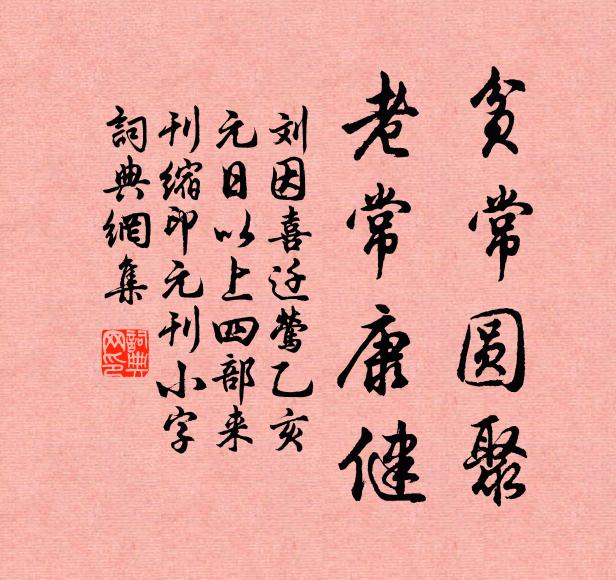 贫常圆聚
老常康健
刘因喜迁莺乙亥
元日以上四部来
刊缩印元刊小字
詞典網集
詞典网印